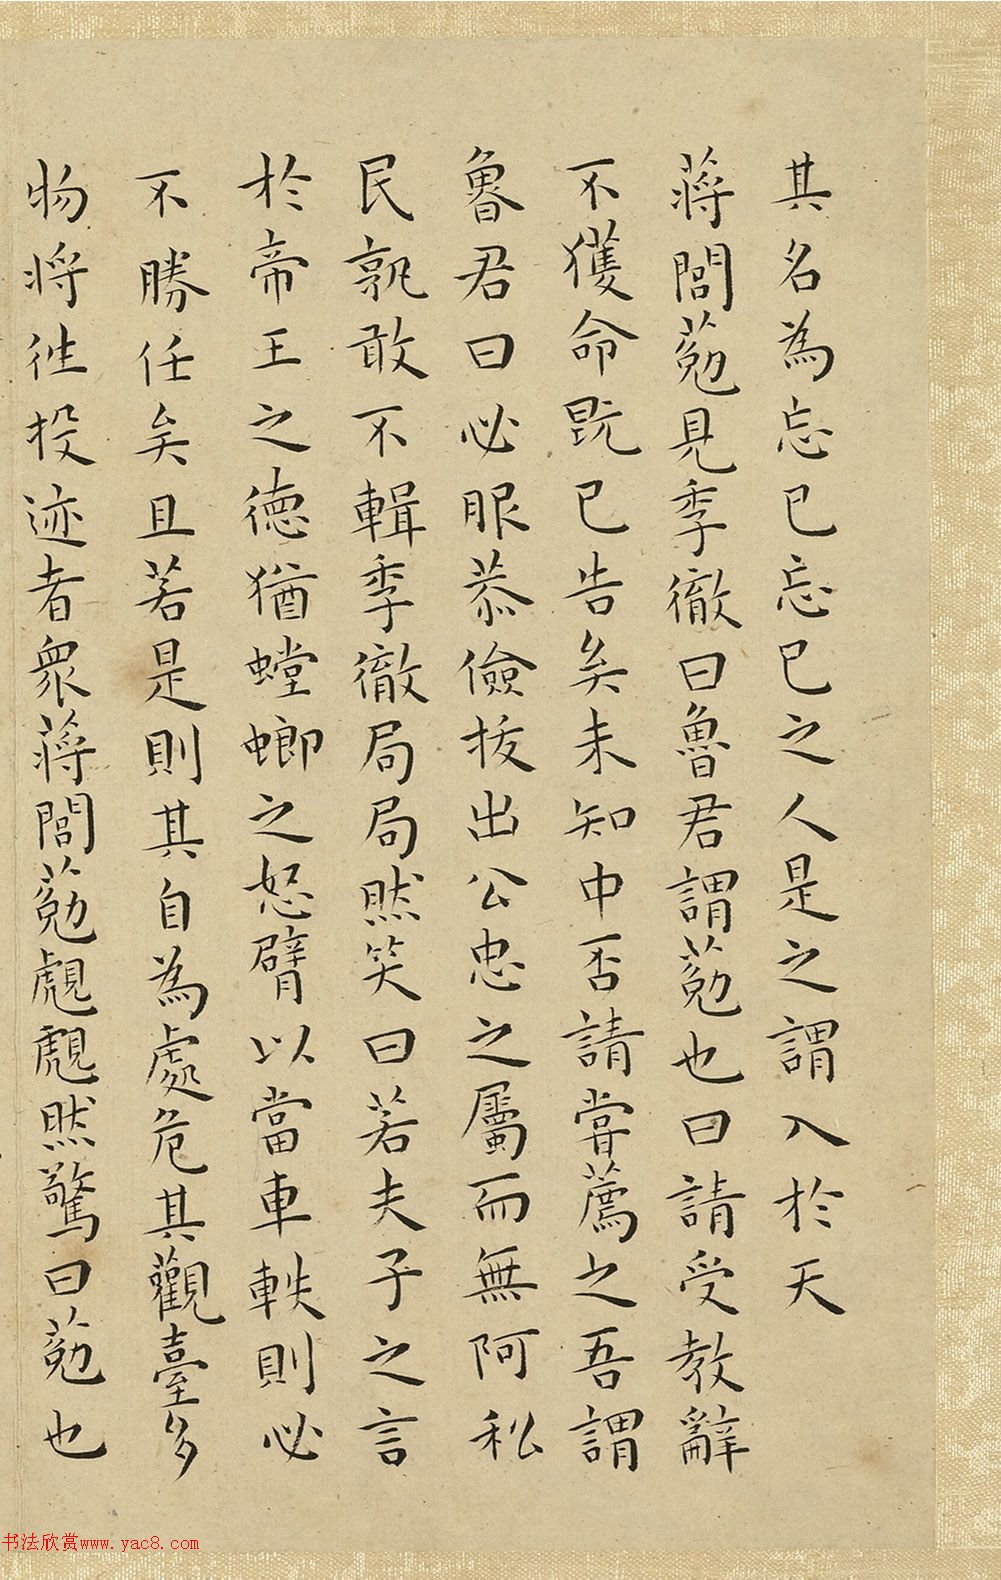 其名為忘已忘已之人是之謂入於天
蔣閭葂見季徹曰魯君謂葂也曰請受教辭
不獲命既已告矣未知中否請嘗薦之吾謂
魯君曰必服恭儉拔出公忠之屬而無阿私
民孰敢不輯季徹局局然笑曰若夫子之言
於帝王之德猶螳螂之怒臂以當車軼則必
不勝任矣且若是則其自為處危其觀臺多
物將往投迹者眾蔣閭葂覤覤然驚曰葂也
书法欣赏www.yac8.com